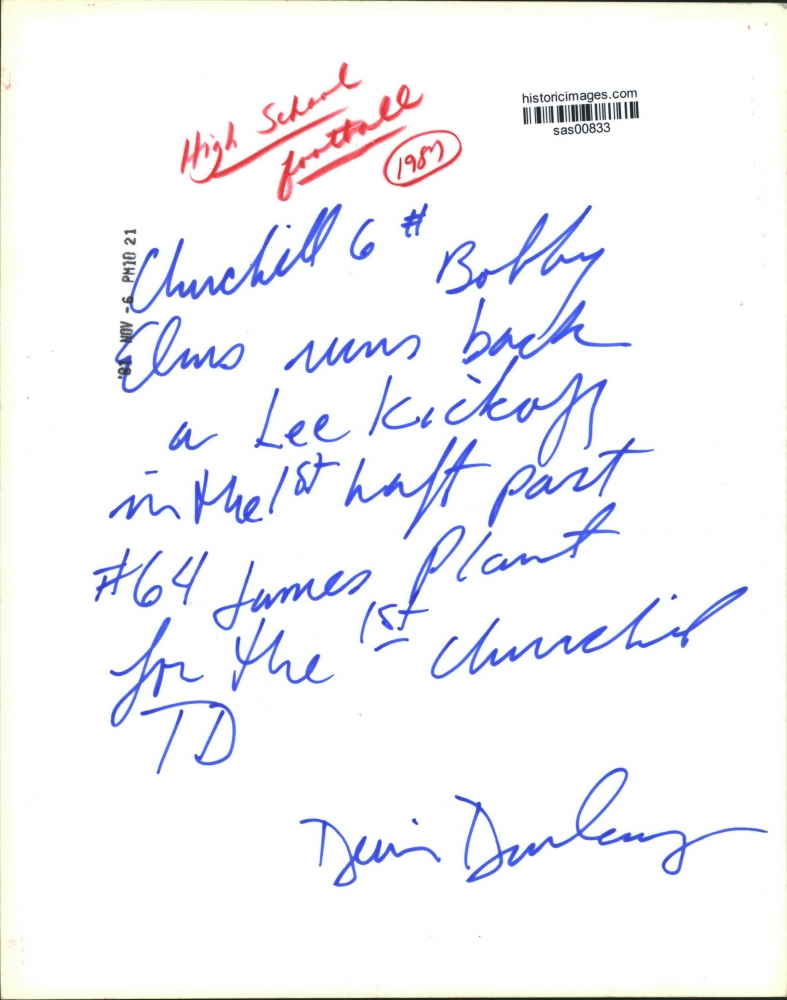 High School
football
1987
historicimages.com
sas00833
NOV -6 PM10 21
Churchill 6 # Bobby
Elms runs back
a Lee Kickoff
in the 1st half past
#64 James Plant
for the 1st Churchill
TD